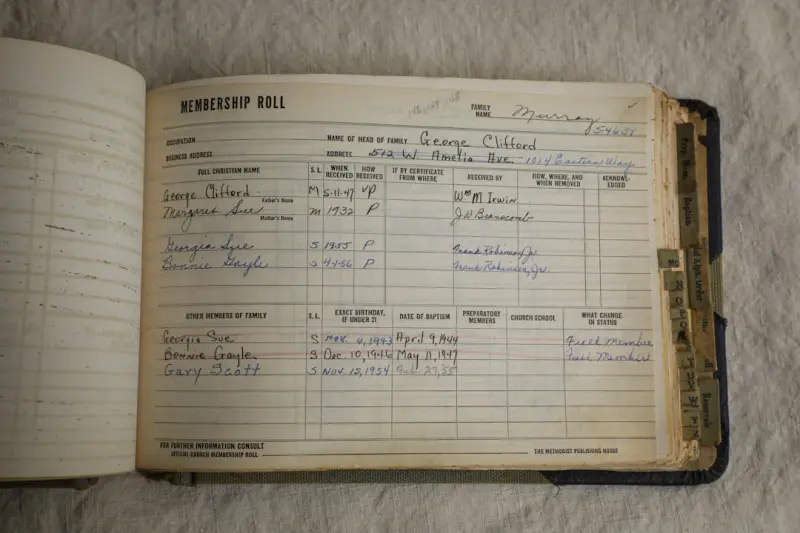 MEMBERSHIP ROLL
FAMILY NAME Murray
54657
OCCUPATION NAME OF HEAD OF FAMILY George Clifford
BUSINESS ADDRESS ADDRESS 512 W. Amelia Ave. 1014 Eastern Way
FULL CHRISTIAN NAME S. L. WHEN RECEIVED HOW RECEIVED IF BY CERTIFICATE FROM WHERE RECEIVED BY HOW, WHERE, AND WHEN REMOVED ACKNOWLEDGED
George Clifford M 5-11-47 VP Wm M Irwin
Father's Name
Margaret Sue M 1932 P J.D. Branscomb
Mother's Name
Georgia Sue S 1955 P Frank Robinson, Jr.
Bonnie Gayle S 4-1-56 P Frank Robinson, Jr.
OTHER MEMBERS OF FAMILY S. L. EXACT BIRTHDAY, IF UNDER 21 DATE OF BAPTISM PREPARATORY MEMBERS CHURCH SCHOOL WHAT CHANGE IN STATUS
Georgia Sue S Nov. 4, 1943 April 9, 1944 Full Member
Bonnie Gayle S Dec. 10, 1946 May 11, 1947 Full Member
Gary Scott S Nov. 15, 1954 27, 55
FOR FURTHER INFORMATION CONSULT
OFFICIAL CHURCH MEMBERSHIP ROLL THE METHODIST PUBLISHING HOUSE
Baptism
Removals
M
N
O
P
U
V
W
Y